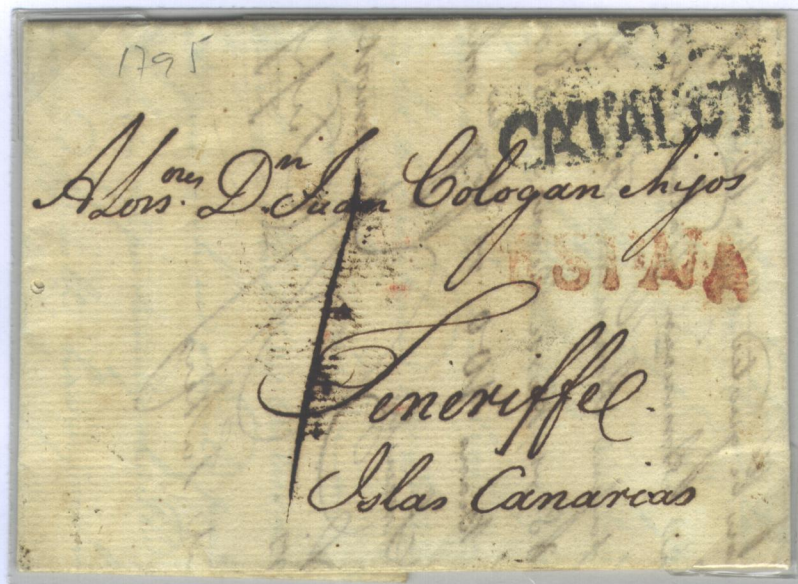 1795
CATALUÑ
A Lors.ores Dn. Juan Cologan hijos
ESPAÑA
Teneriffe.
Islas Canarias